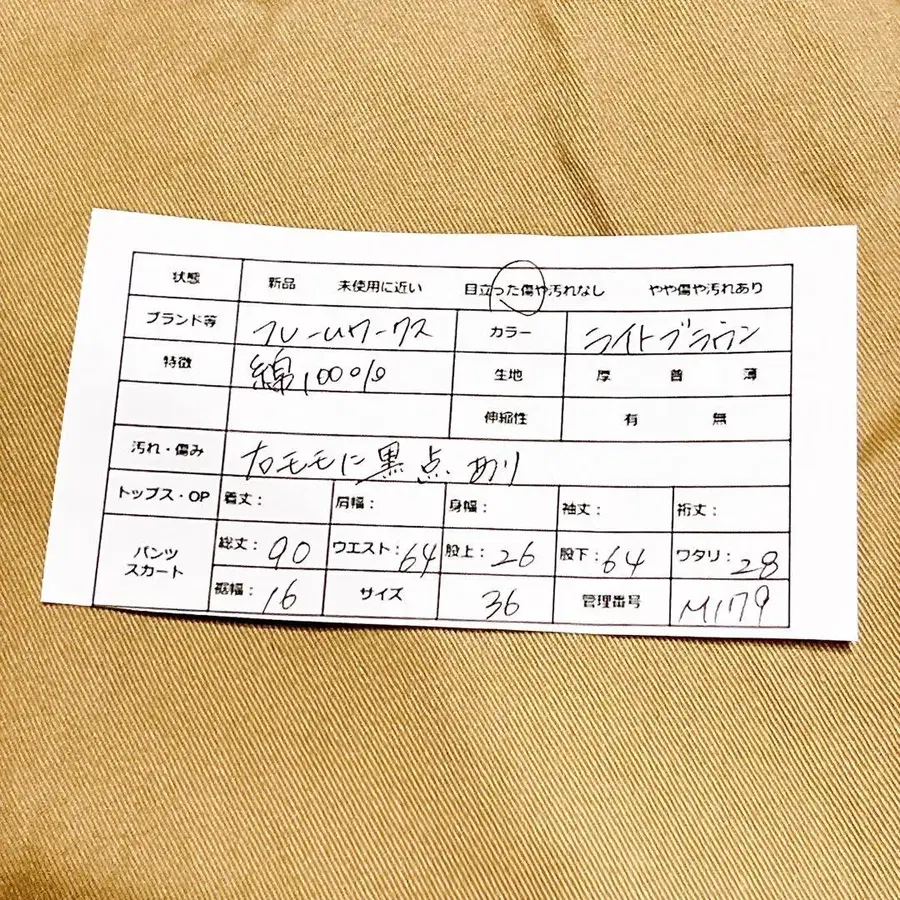 状態 新品 未使用に近い 目立った傷や汚れなし やや傷や汚れあり
ブランド等 フレームワークス カラー ライトブラウン
特徴 綿100% 生地 厚 普 薄
伸縮性 有 無
汚れ・傷み 右モモに黒点あり
トップス・OP 着丈: 肩幅: 身幅: 袖丈: 裄丈:
パンツ スカート 総丈:90 ウエスト:64 股上:26 股下:64 ワタリ:28
裾幅:16 サイズ 36 管理番号 M179